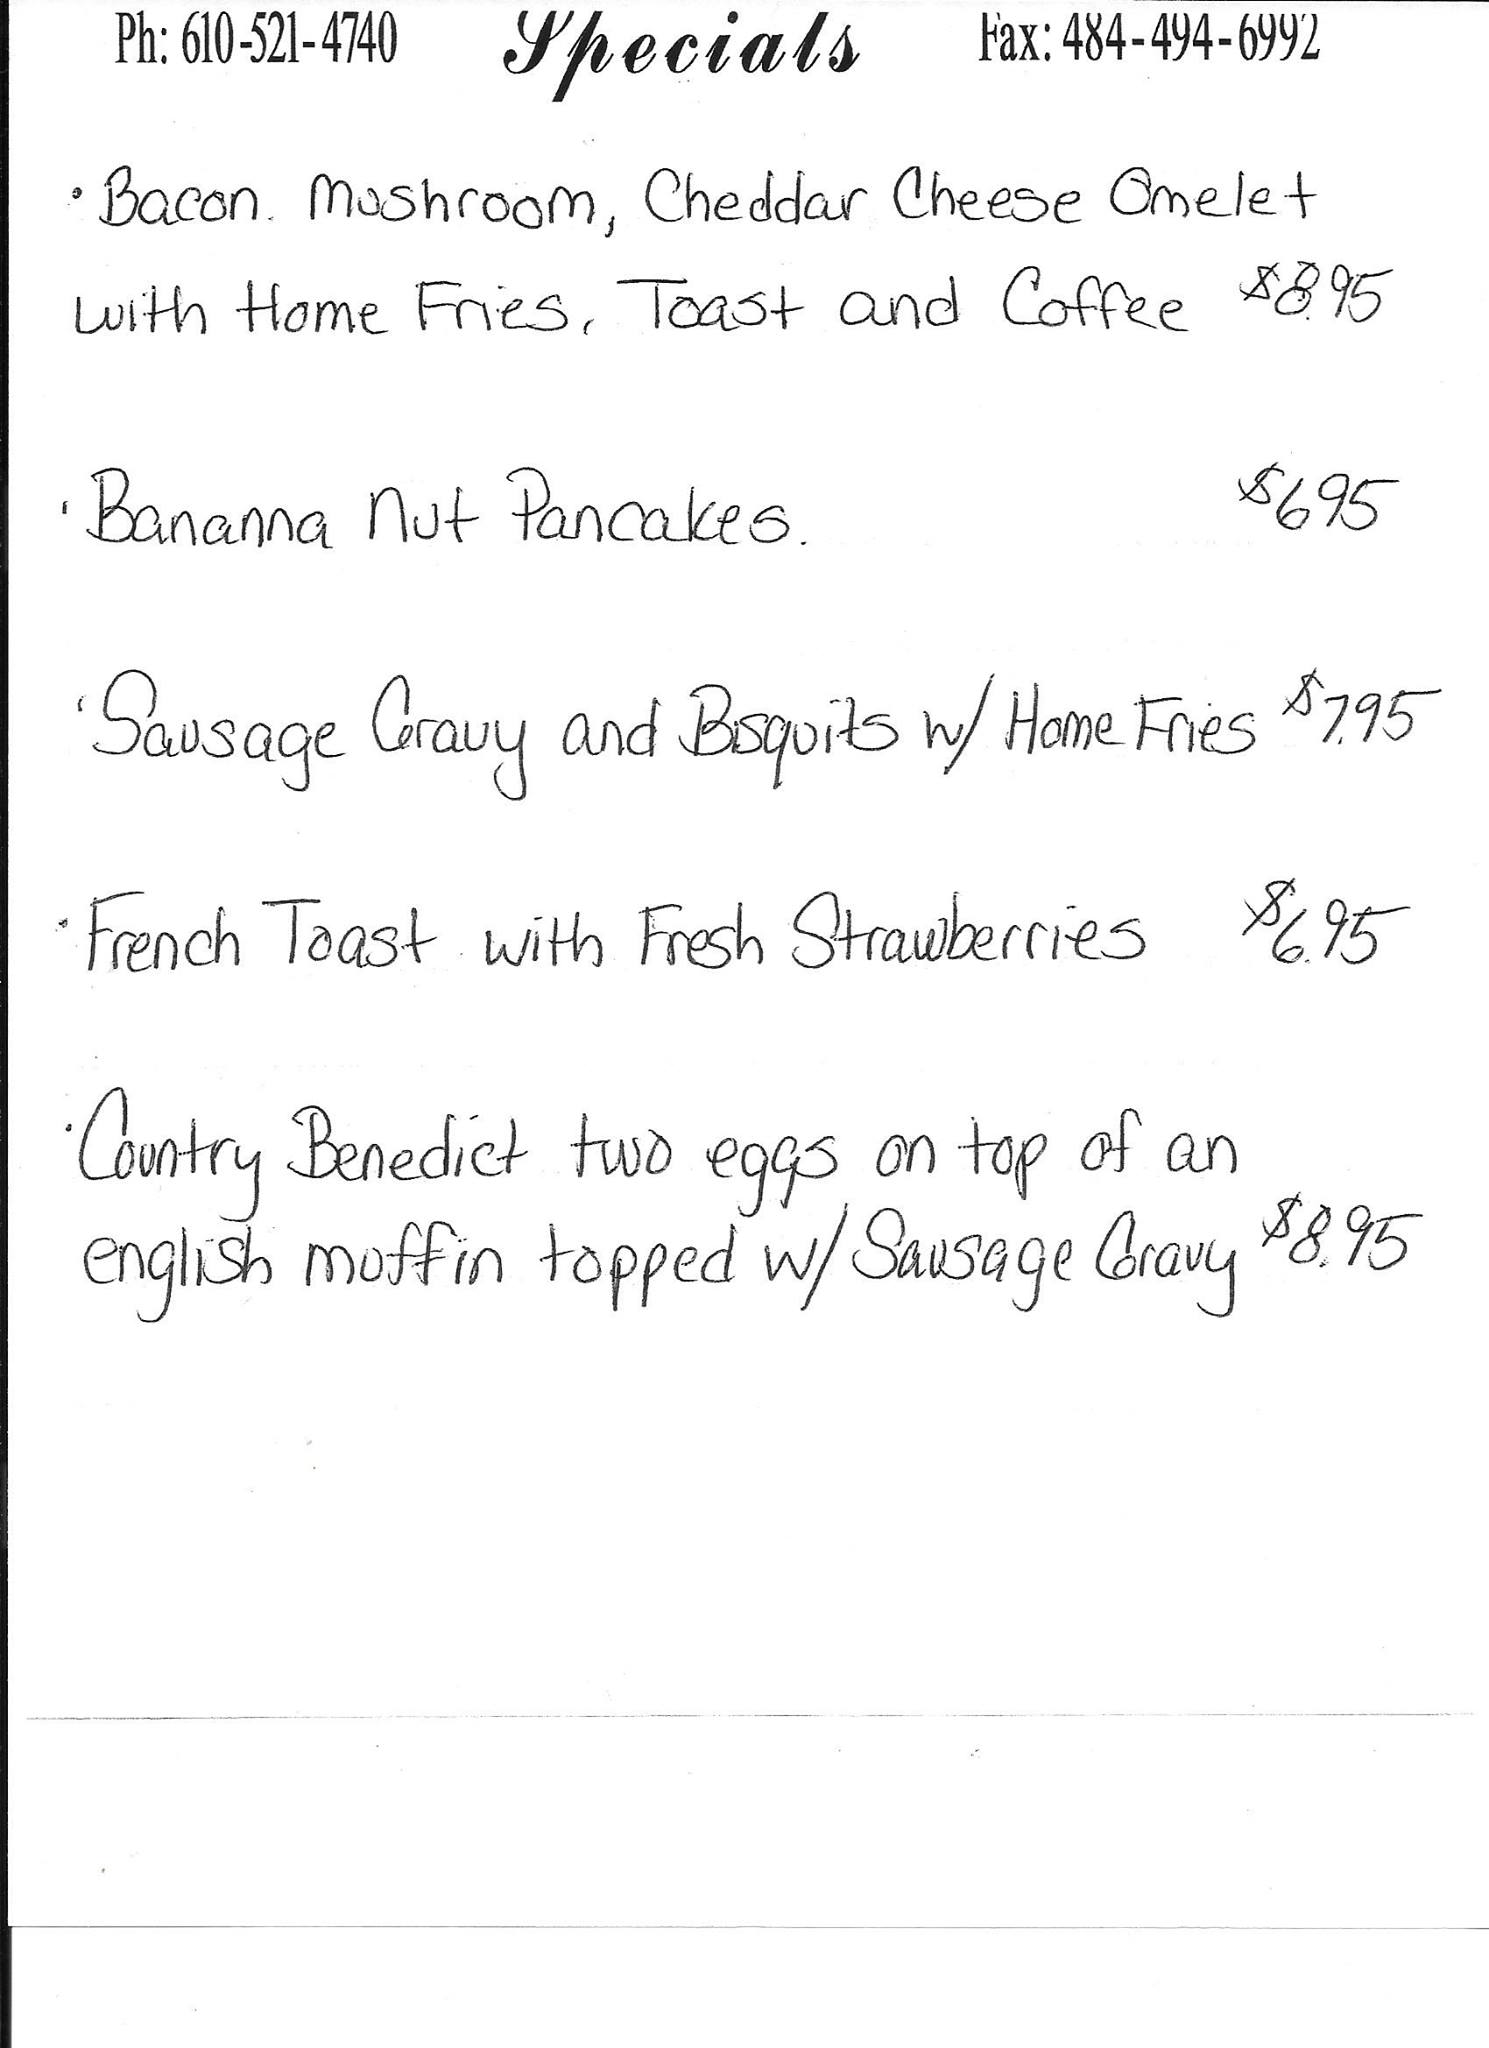 Ph: 610-521-4740 Specials Fax: 484-494-6992
· Bacon. Mushroom, Cheddar Cheese Omelet
with Home Fries, Toast and Coffee $8.95
· Bananna Nut Pancakes. $6.95
· Sausage Gravy and Bisquits w/ Home Fries $7.95
· French Toast with Fresh Strawberries $6.95
· Country Benedict two eggs on top of an
english muffin topped w/ Sausage Gravy $8.95